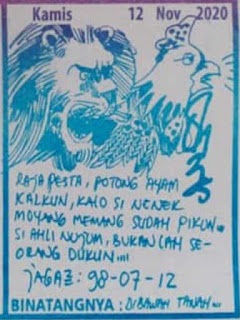 Kamis 12 Nov 2020
RAJA PESTA, POTONG AYAM
KALKUN, KALO SI NENEK
MOYANG MEMANG SUDAH PIKUN..
SI AHLI NUJUM, BUKANLAH SE-
ORANG DUKUN....
JAGA2: 98-07-12
BINATANGNYA: DIBAWAH TANAH...